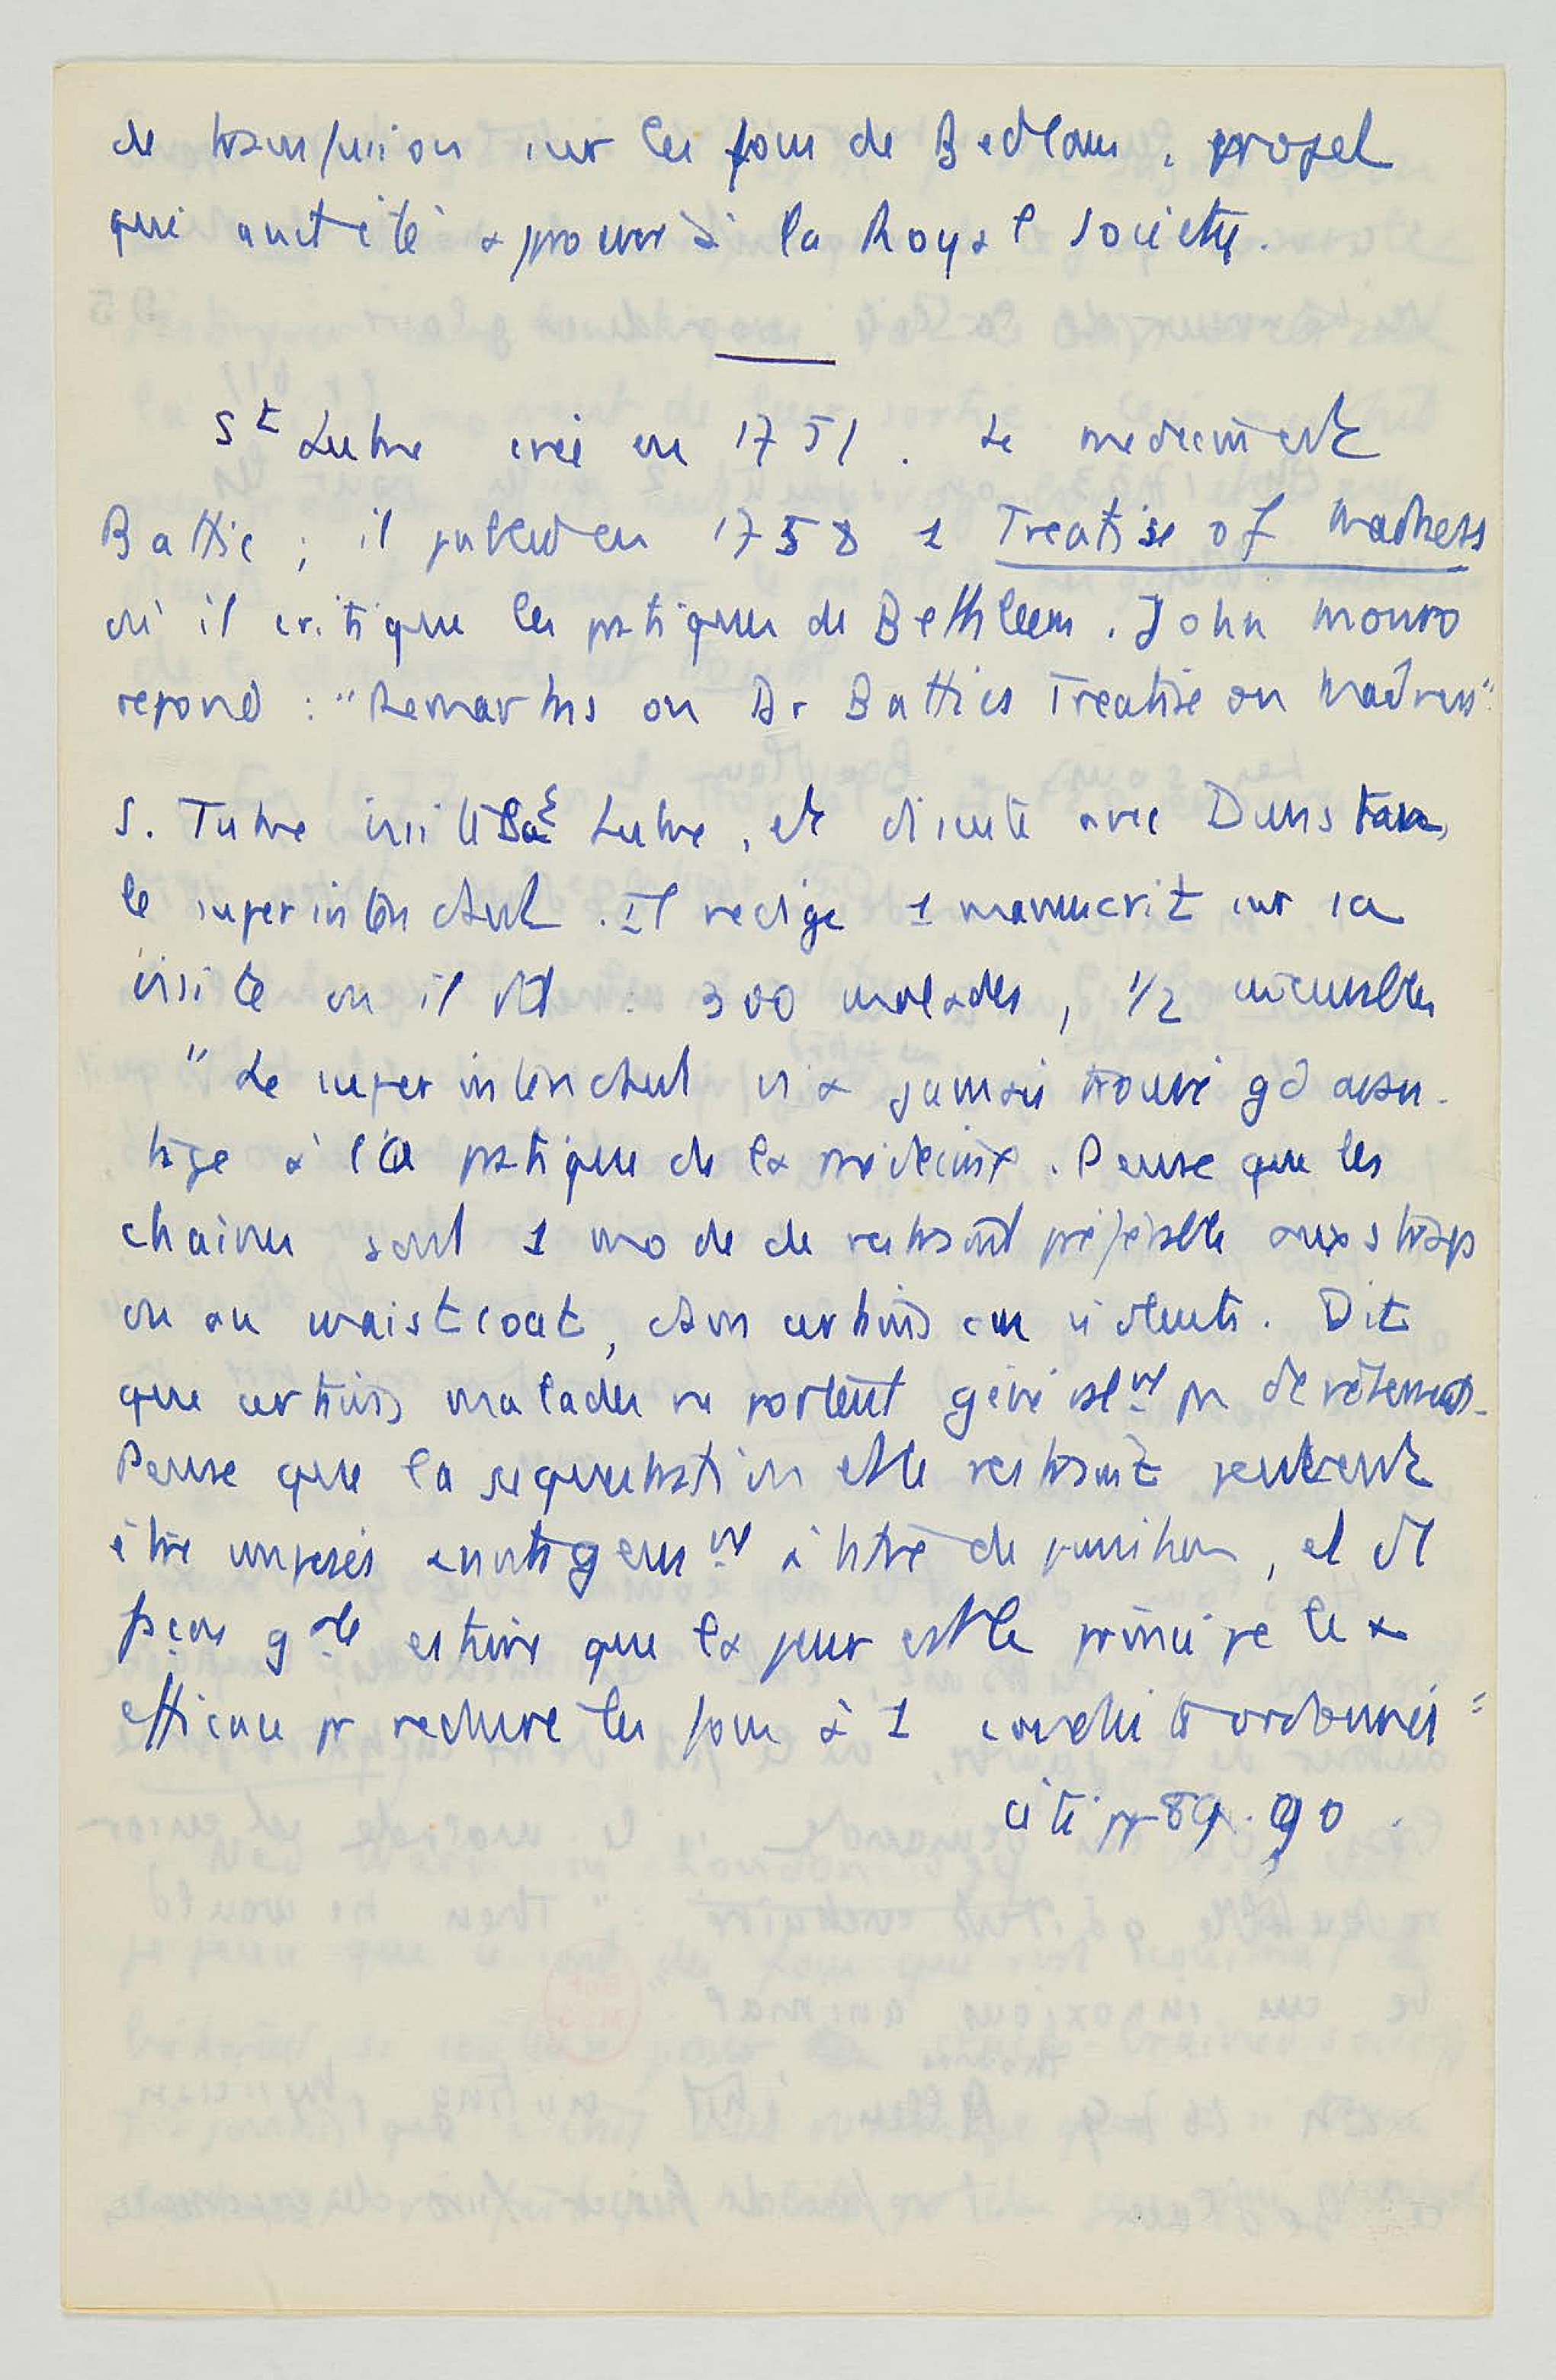 de transfusion sur les fous de Bedlam, projet
qui avait été approuvé à la Royal Society.
St Luke créé en 1751. Le médecin est
Battie ; il publie en 1758 1 Treatise of Madness
où il critique les pratiques de Bethleem. John Monro
repond : "Remarks on Dr Batties Treatise on Madness"
S. Tuke visite St Luke, et discute avec Dunstan,
le superintendant. Il redige 1 manuscrit sur sa
visite où il dit : 300 malades, 1/2 incurables
"Le superintendant n'a jamais trouvé gd avan-
tage à la pratique de la médecine. Pense que les
chaines sont 1 mode de restraint préférable aux straps
ou au waistcoat, dans certains cas violents. Dit
que certains malades ne portent généralmt pas de vêtements.
Pense que la sequestration et le restraint peuvent
être imposés avantageusmt à titre de punition, et de
façon gale estime que la peur est le principe le +
efficace pr reduire les fous à 1 conduite ordonnée"
cité pp 89-90.